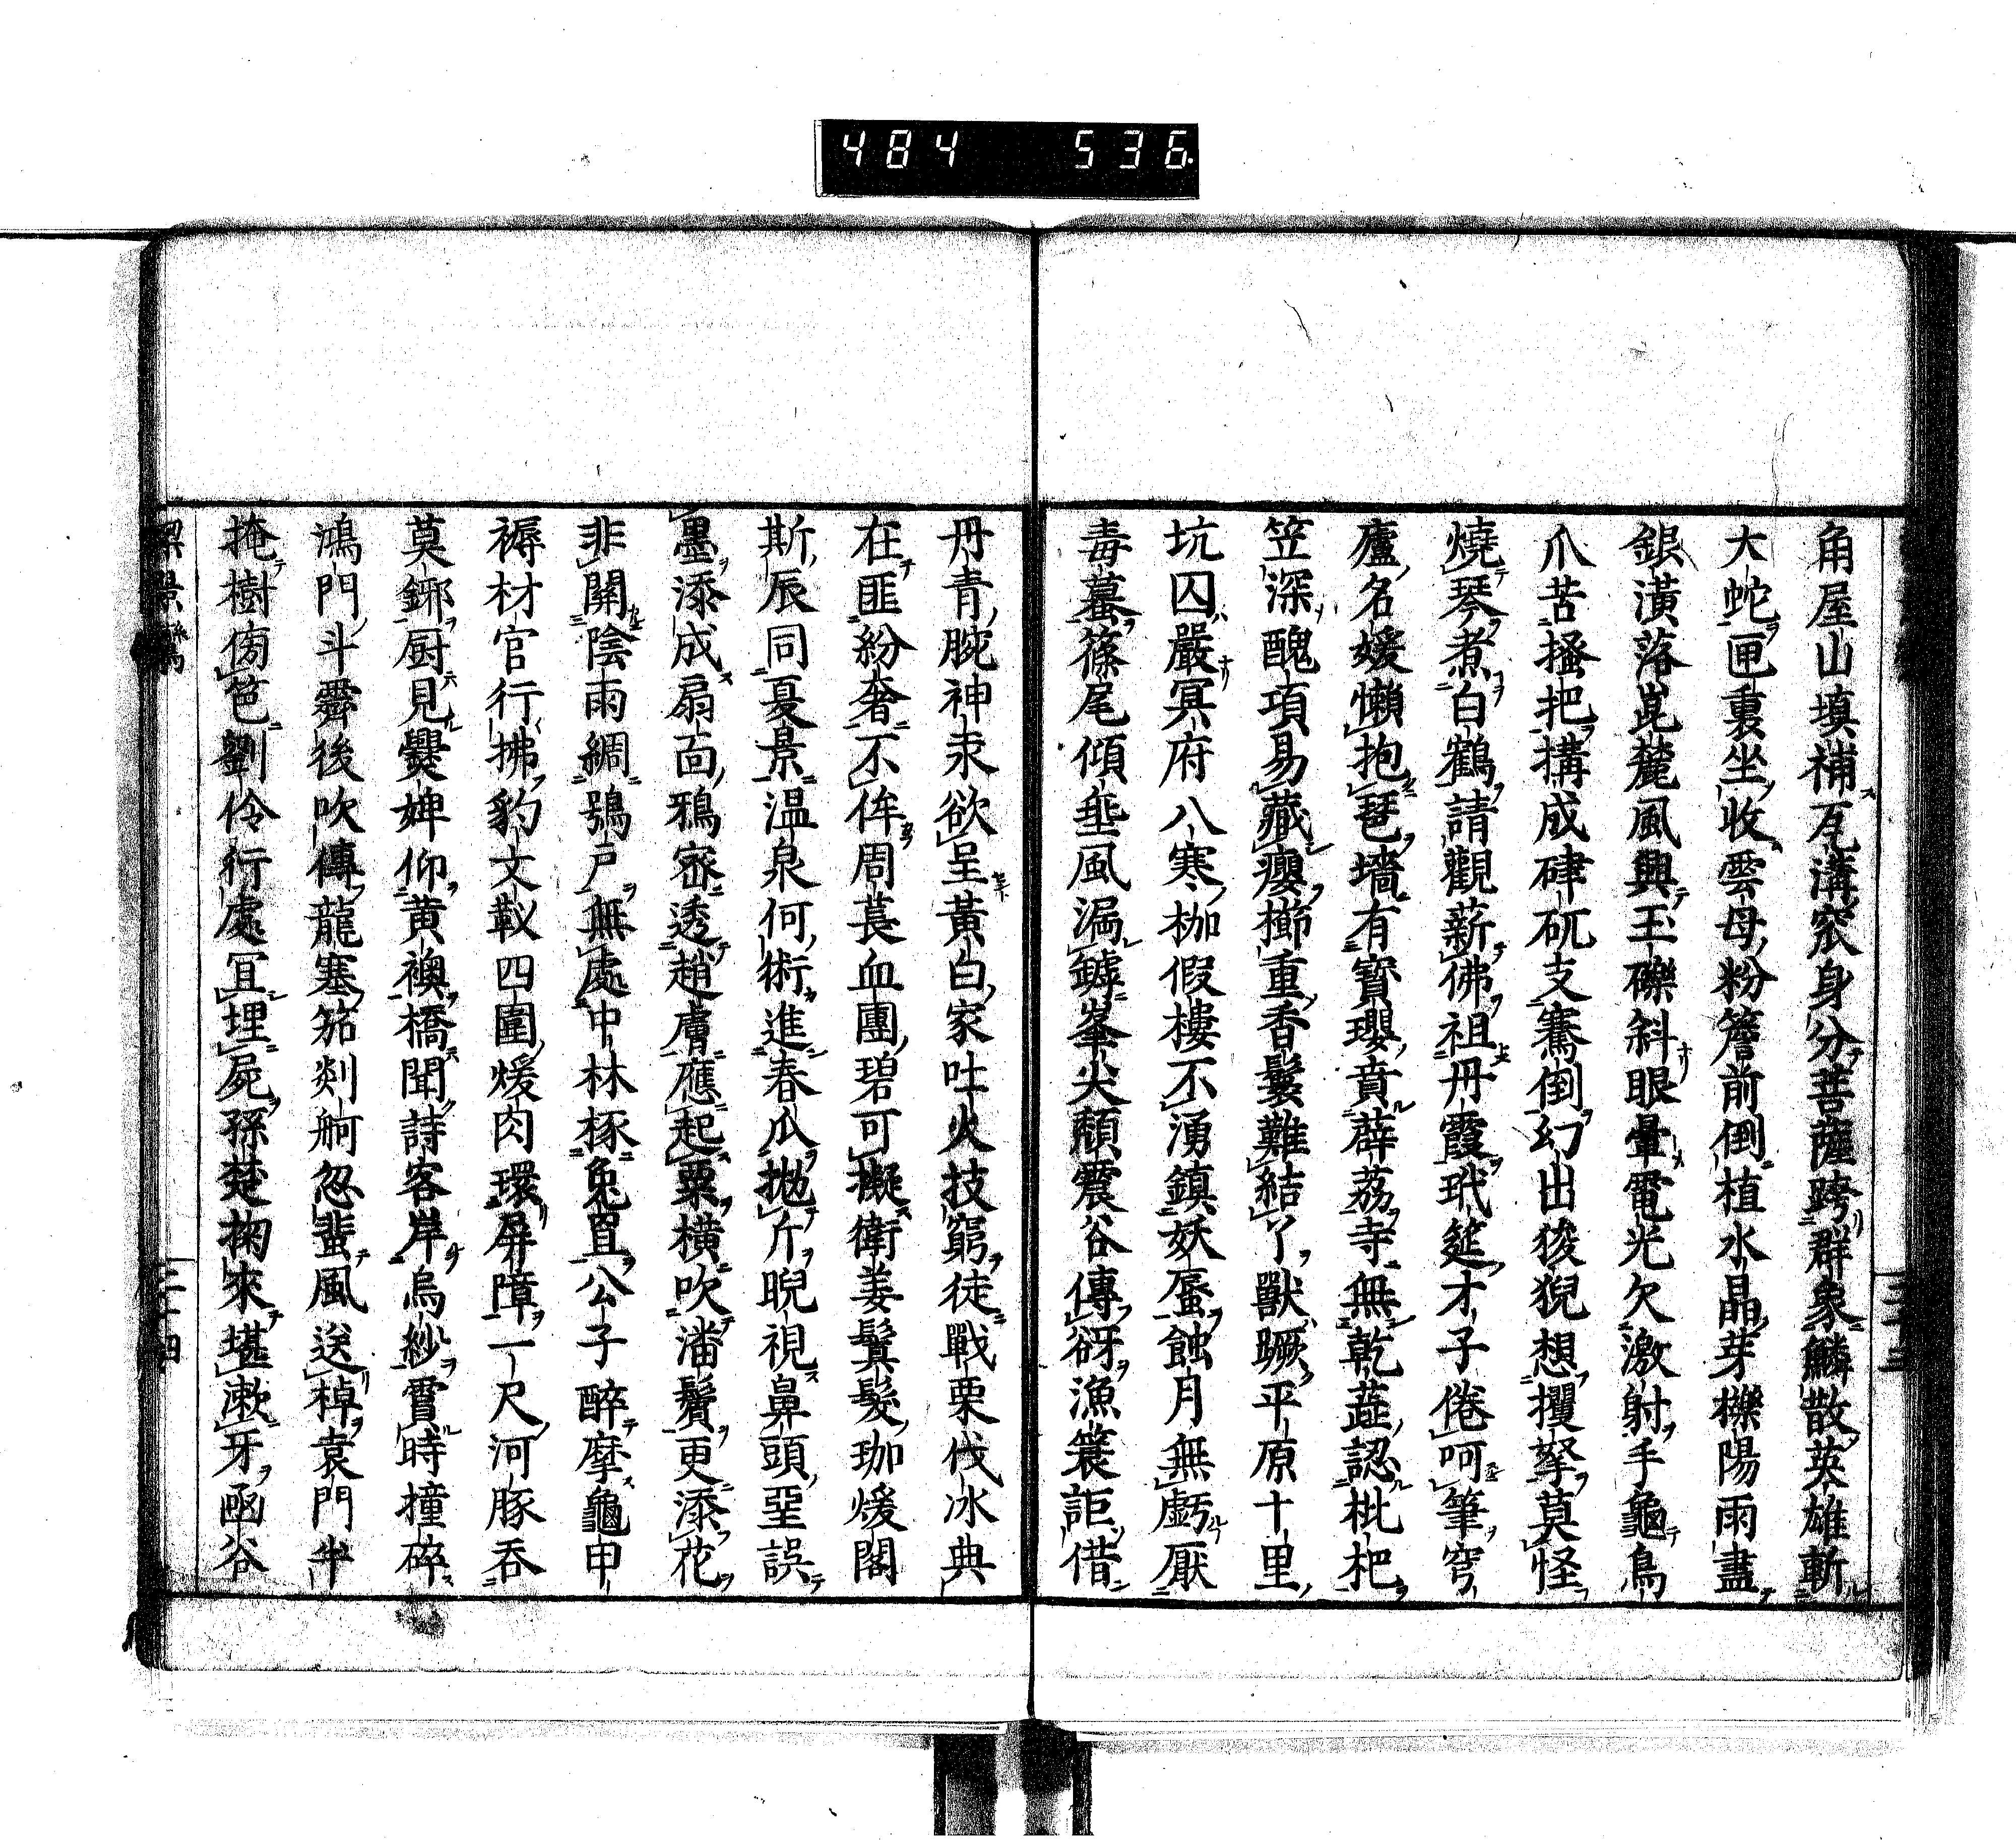 484 536
角屋山填補瓦溝窓身分菩薩跨群象鱗散英雄斬
大蛇匣裏坐收雲母粉簷前倒植水晶芽櫟陽雨盡
銀潢落崑麓風興玉礫斜眼暈電光欠激射手龜鳥
爪苦搔把搆成硉矹支騫倒幻出狻猊想攫拏莫怪
燒琴煮白鶴請觀薪佛祖丹霞玳筵才子倦呵筆穹
廬名媛懶抱琶墻有寶瓔賁薜荔寺無乾蔬認枇杷
笠深醜項易藏癭櫛重香鬟難結丫獸蹶平原十里
坑囚嚴冥府八寒枷假樓不湧鎮妖蜃蝕月無虧厭
毒蟇篠尾傾垂風漏罅峯尖頹震谷傳谺漁簑詎借
丹青腕神汞欲呈黃白家吐火技窮徒戰栗伐冰典
在匪紛奢不侔周萇血團碧可擬衛姜鬒髮珈煖閣
斯辰同夏景温泉何術進春瓜拋斤睨視鼻頭堊誤
墨添成扇面鴉密透趙膚應起粟橫吹潘鬢更添花
非關陰雨綢鴞戶無處中林椓兔罝公子醉摩龜甲
褥材官行拂豹文靫四圍煖肉環屏障一尺河豚吞
莫鎁厨見爨婢仰黃襖橋聞詩客岸烏紗霣時撞碎
鴻門斗霽後吹傳龍塞笳剡舸忽蜚風送棹袁門半
掩樹傍笆劉伶行處宜埋屍孫楚掬來堪漱牙函谷
三十四